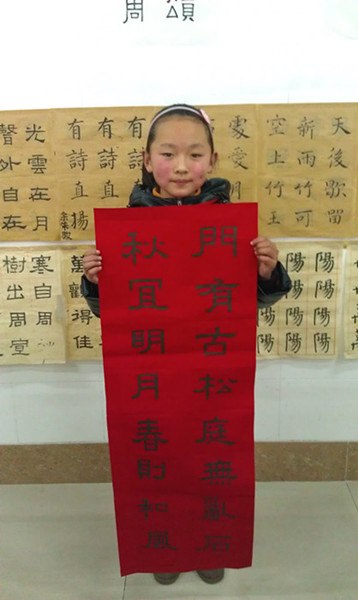 周頌
門有古松庭無亂石
秋宜明月春則和風
新雨竹可
空上竹玉
處愛
有詩直
有詩直
有詩直揚
光雲在月
聲外自在
陽陽陽
陽陽陽
寒自周
樹出周堂
得佳